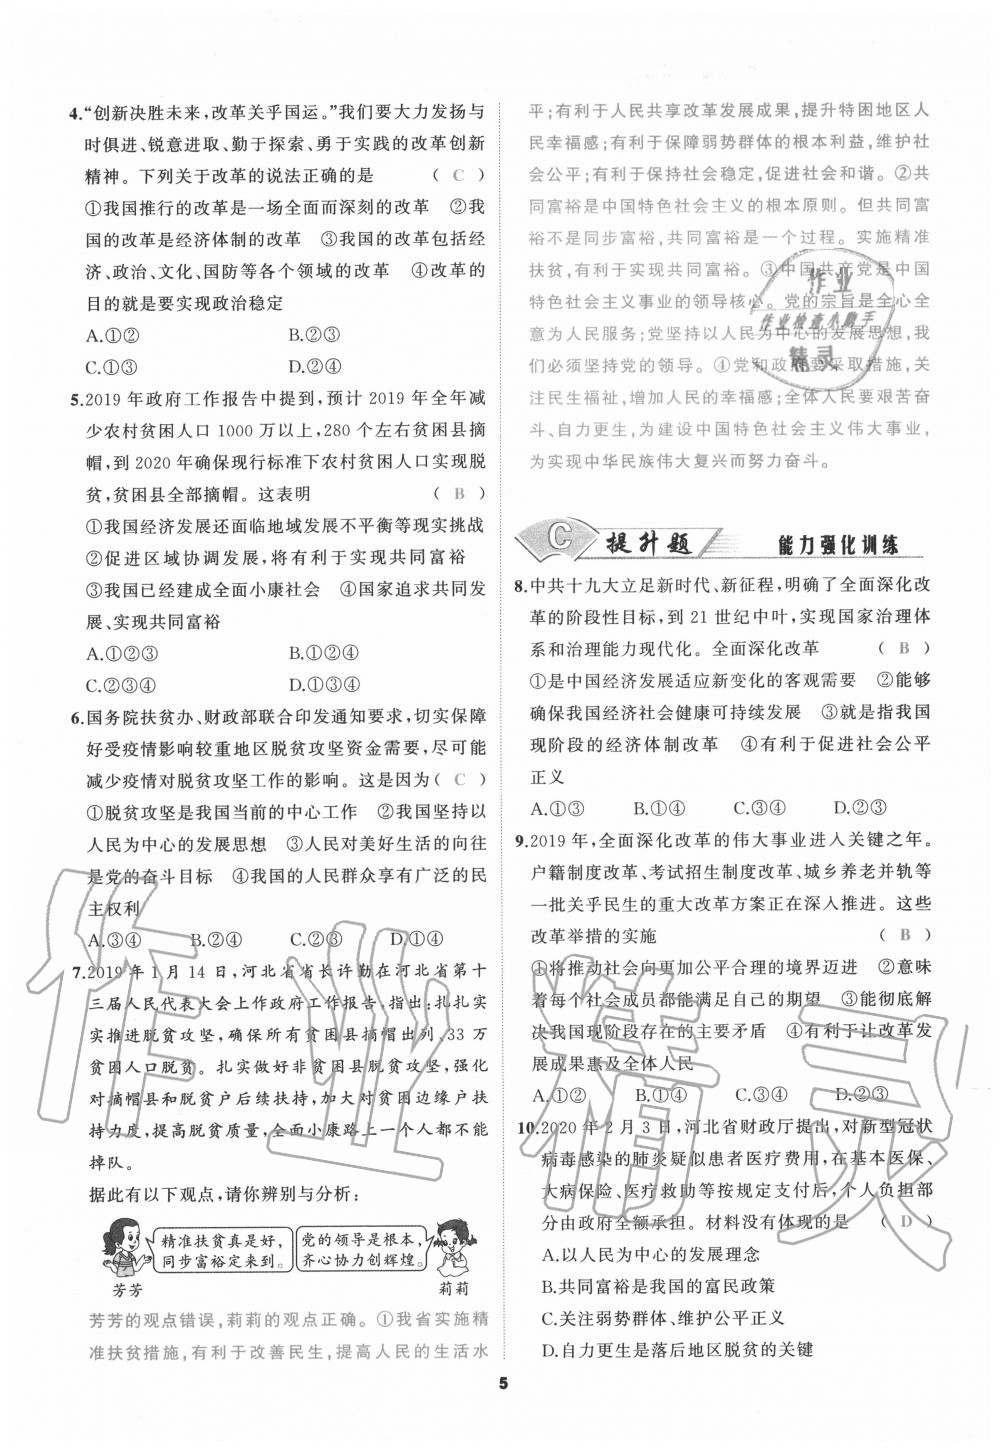 4.“创新决胜未来,改革关乎国运。”我们要大力发扬与
时俱进、锐意进取、勤于探索、勇于实践的改革创新
精神。下列关于改革的说法正确的是 ( C )
①我国推行的改革是一场全面而深刻的改革 ②我
国的改革是经济体制的改革 ③我国的改革包括经
济、政治、文化、国防等各个领域的改革 ④改革的
目的就是要实现政治稳定
A.①② B.②③
C.①③ D.②④
5.2019年政府工作报告中提到,预计2019年全年减
少农村贫困人口1000万以上,280个左右贫困县摘
帽,到2020年确保现行标准下农村贫困人口实现脱
贫,贫困县全部摘帽。这表明 ( B )
①我国经济发展还面临地域发展不平衡等现实挑战
②促进区域协调发展,将有利于实现共同富裕
③我国已经建成全面小康社会 ④国家追求共同发
展、实现共同富裕
A.①②③ B.①②④
C.②③④ D.①③④
6.国务院扶贫办、财政部联合印发通知要求,切实保障
好受疫情影响较重地区脱贫攻坚资金需要,尽可能
减少疫情对脱贫攻坚工作的影响。这是因为( C )
①脱贫攻坚是我国当前的中心工作 ②我国坚持以
人民为中心的发展思想 ③人民对美好生活的向往
是党的奋斗目标 ④我国的人民群众享有广泛的民
主权利
A.③④ B.②④ C.②③ D.①④
7.2019年1月14日,河北省省长许勤在河北省第十
三届人民代表大会上作政府工作报告,指出:扎扎实
实推进脱贫攻坚,确保所有贫困县摘帽出列、33万
贫困人口脱贫。扎实做好非贫困县脱贫攻坚,强化
对摘帽县和脱贫户后续扶持,加大对贫困边缘户扶
持力度,提高脱贫质量,全面小康路上一个人都不能
掉队。
据此有以下观点,请你辨别与分析:
精准扶贫真是好,
同步富裕定来到。
党的领导是根本,
齐心协力创辉煌。
芳芳
莉莉
芳芳的观点错误,莉莉的观点正确。①我省实施精
准扶贫措施,有利于改善民生,提高人民的生活水
平;有利于人民共享改革发展成果,提升特困地区人
民幸福感;有利于保障弱势群体的根本利益,维护社
会公平;有利于保持社会稳定,促进社会和谐。②共
同富裕是中国特色社会主义的根本原则。但共同富
裕不是同步富裕,共同富裕是一个过程。实施精准
扶贫,有利于实现共同富裕。③中国共产党是中国
特色社会主义事业的领导核心。党的宗旨是全心全
意为人民服务;党坚持以人民为中心的发展思想,我
们必须坚持党的领导。④党和政府要采取措施,关
注民生福祉,增加人民的幸福感;全体人民要艰苦奋
斗、自力更生,为建设中国特色社会主义伟大事业,
为实现中华民族伟大复兴而努力奋斗。
作业
作业检查小助手
精灵
C 提升题 能力强化训练
8.中共十九大立足新时代、新征程,明确了全面深化改
革的阶段性目标,到21世纪中叶,实现国家治理体
系和治理能力现代化。全面深化改革 ( B )
①是中国经济发展适应新变化的客观需要 ②能够
确保我国经济社会健康可持续发展 ③就是指我国
现阶段的经济体制改革 ④有利于促进社会公平
正义
A.①③ B.①④ C.③④ D.②③
9.2019年,全面深化改革的伟大事业进入关键之年。
户籍制度改革、考试招生制度改革、城乡养老并轨等
一批关乎民生的重大改革方案正在深入推进。这些
改革举措的实施 ( B )
①将推动社会向更加公平合理的境界迈进 ②意味
着每个社会成员都能满足自己的期望 ③能彻底解
决我国现阶段存在的主要矛盾 ④有利于让改革发
展成果惠及全体人民
A.①② B.①④ C.②③ D.②④
10.2020年2月3日,河北省财政厅提出,对新型冠状
病毒感染的肺炎疑似患者医疗费用,在基本医保、
大病保险、医疗救助等按规定支付后,个人负担部
分由政府全额承担。材料没有体现的是 ( D )
A.以人民为中心的发展理念
B.共同富裕是我国的富民政策
C.关注弱势群体、维护公平正义
D.自力更生是落后地区脱贫的关键
作业精灵
5